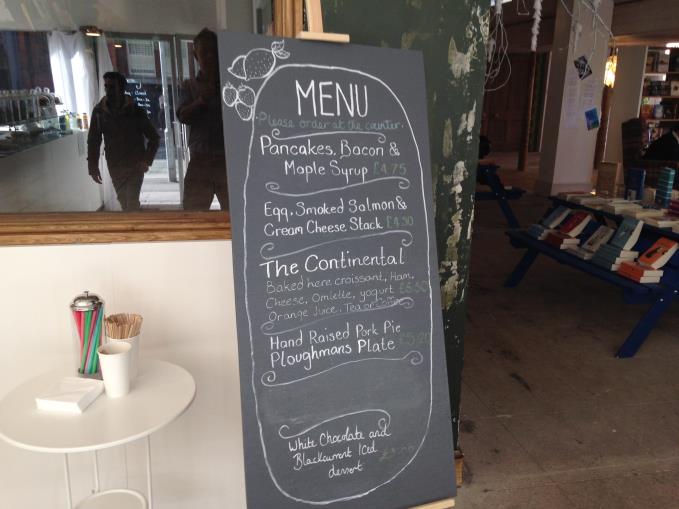 MENU
Please order at the counter.
Pancakes, Bacon &
Maple Syrup £4.75
Egg, Smoked Salmon &
Cream Cheese Stack £4.50
The Continental
Baked here croissant, Ham,
Cheese, Omlette, yogurt £6.50
Orange Juice, Tea or Coffee
Hand Raised Pork Pie
Ploughmans Plate £5.20
White Chocolate and
Blackcurrant Iced
dessert